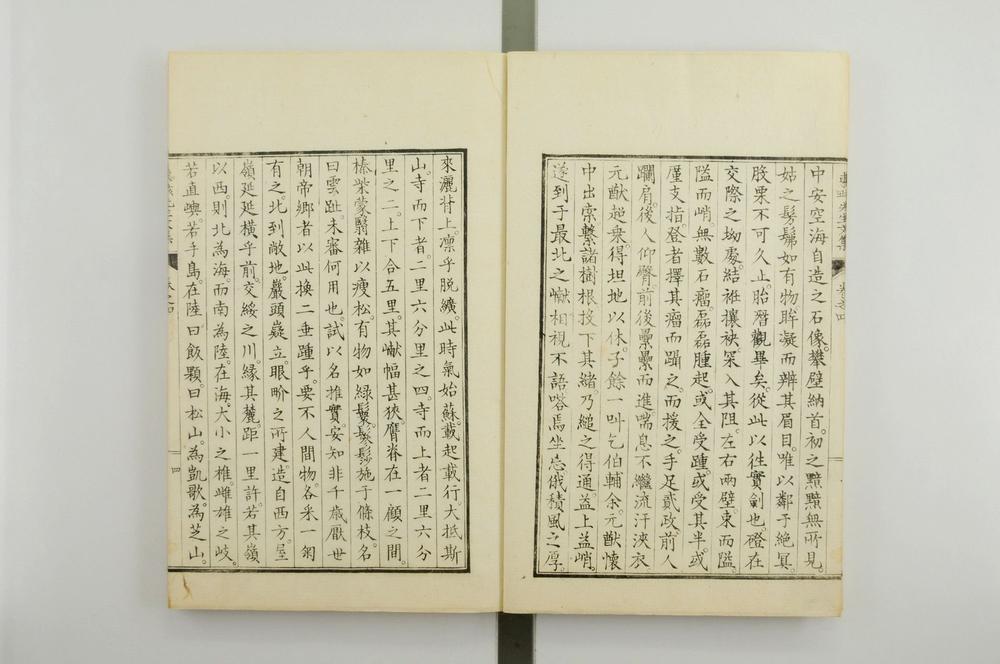 中安空海自造之石像。攀壁納首。初之黯黯無所見。
姑之髣髴如有物眸凝而辨其眉目。唯以鄰于絶冥
股栗不可久止。胎厝觀畢矣。從此以往實劍也。磴在
交際之坳處。結袵攘袂罙入其阻。左右兩壁。束而隘。
隘而峭無數石瘤。磊磊腫起。或全受踵。或受其半。或
厪支指登者擇其瘤而躡之。而援之。手足貳政。前人
躙肩。後人仰臀。前後纍纍而進喘息不繼流汗浹衣。
元猷趂衆。得坦地以休。予餘一叫乞伯輔余。元猷懷
中出索。繫諸樹根投下其緒乃縋之得通。益上益峭。
遂到于最北之巘相視不語嗒焉坐忘俄積風之厚。
來灑背上。凛乎脱纊。此時氣始蘇。載起載行大抵斯
山。寺而下者。二里六分里之四。寺而上者二里六分
里之二。上下合五里。其巘幅甚狹。膺脊在一顧之間。
榛柴蒙翳雜以痩松。有物如緑鬉鬖髿施于條枝。名
曰雲趾。未審何用也。試以名推實。安知非千歳厭世
朝帝郷者以此換二垂踵乎。要不人間物。各釆一網
有之。北到敵地。巖頭嶷立。眼畍之所建。造自西方。呈
嶺延延橫乎前。交綏之川。縁其麓。距一里許。若其嶺
以西。則北為海。而南為陸。在海。大小之椎。雌雄之岐。
若直嶼。若手島。在陸曰飯顆。曰松山。為凱歌。為芝山。
四